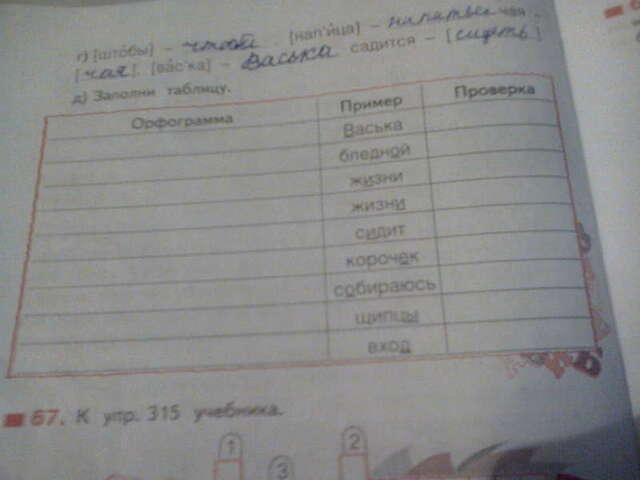 г) [што́бы] – чтобы . [нап'и́ца] – напиться чая –
[чая]. [ва́с'ка] – Васька садится – [сидеть]
д) Заполни таблицу.
Орфограмма Пример Проверка
Васька
бледной
жизни
жизни
сидит
корочек
собираюсь
щипцы
вход
67. К упр. 315 учебника.
1 2
3